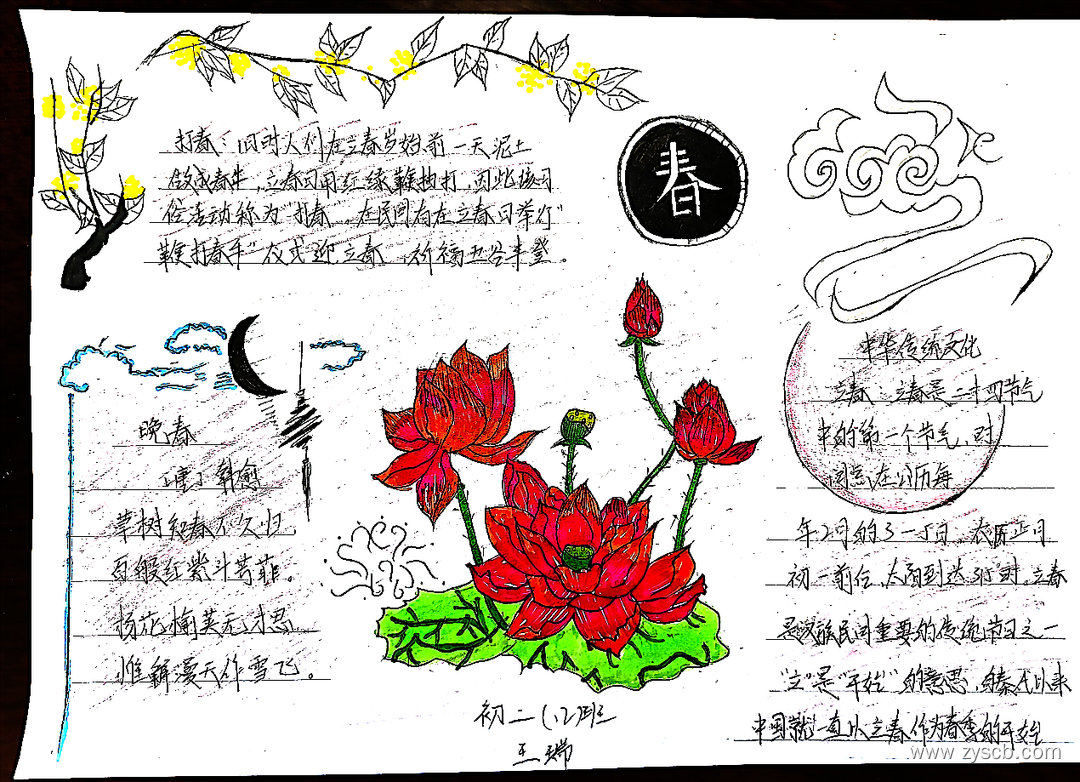 打春：旧时人们在立春岁始前一天泥土
做成春牛，立春日用红绿鞭抽打，因此该习
俗活动称为"打春，在民间有在立春日举行"
鞭打春牛"仪式迎立春 祈福五谷丰登。
春
晚春
［唐］韩愈
草树知春不久归
百般红紫斗芳菲。
杨花榆荚无才思
惟解漫天作雪飞。
中华传统文化
立春：立春是二十四节气
中的第一个节气，时
间点在公历每
年2月的3一5日，农历正月
初一前后，太阳到达315时，立春
是汉族民间重要的传统节日之一
"立"是"开始"的意思，自秦代以来
中国就一直以立春作为春季的开始
初二（12）班
王瑞
www.zyscb.com